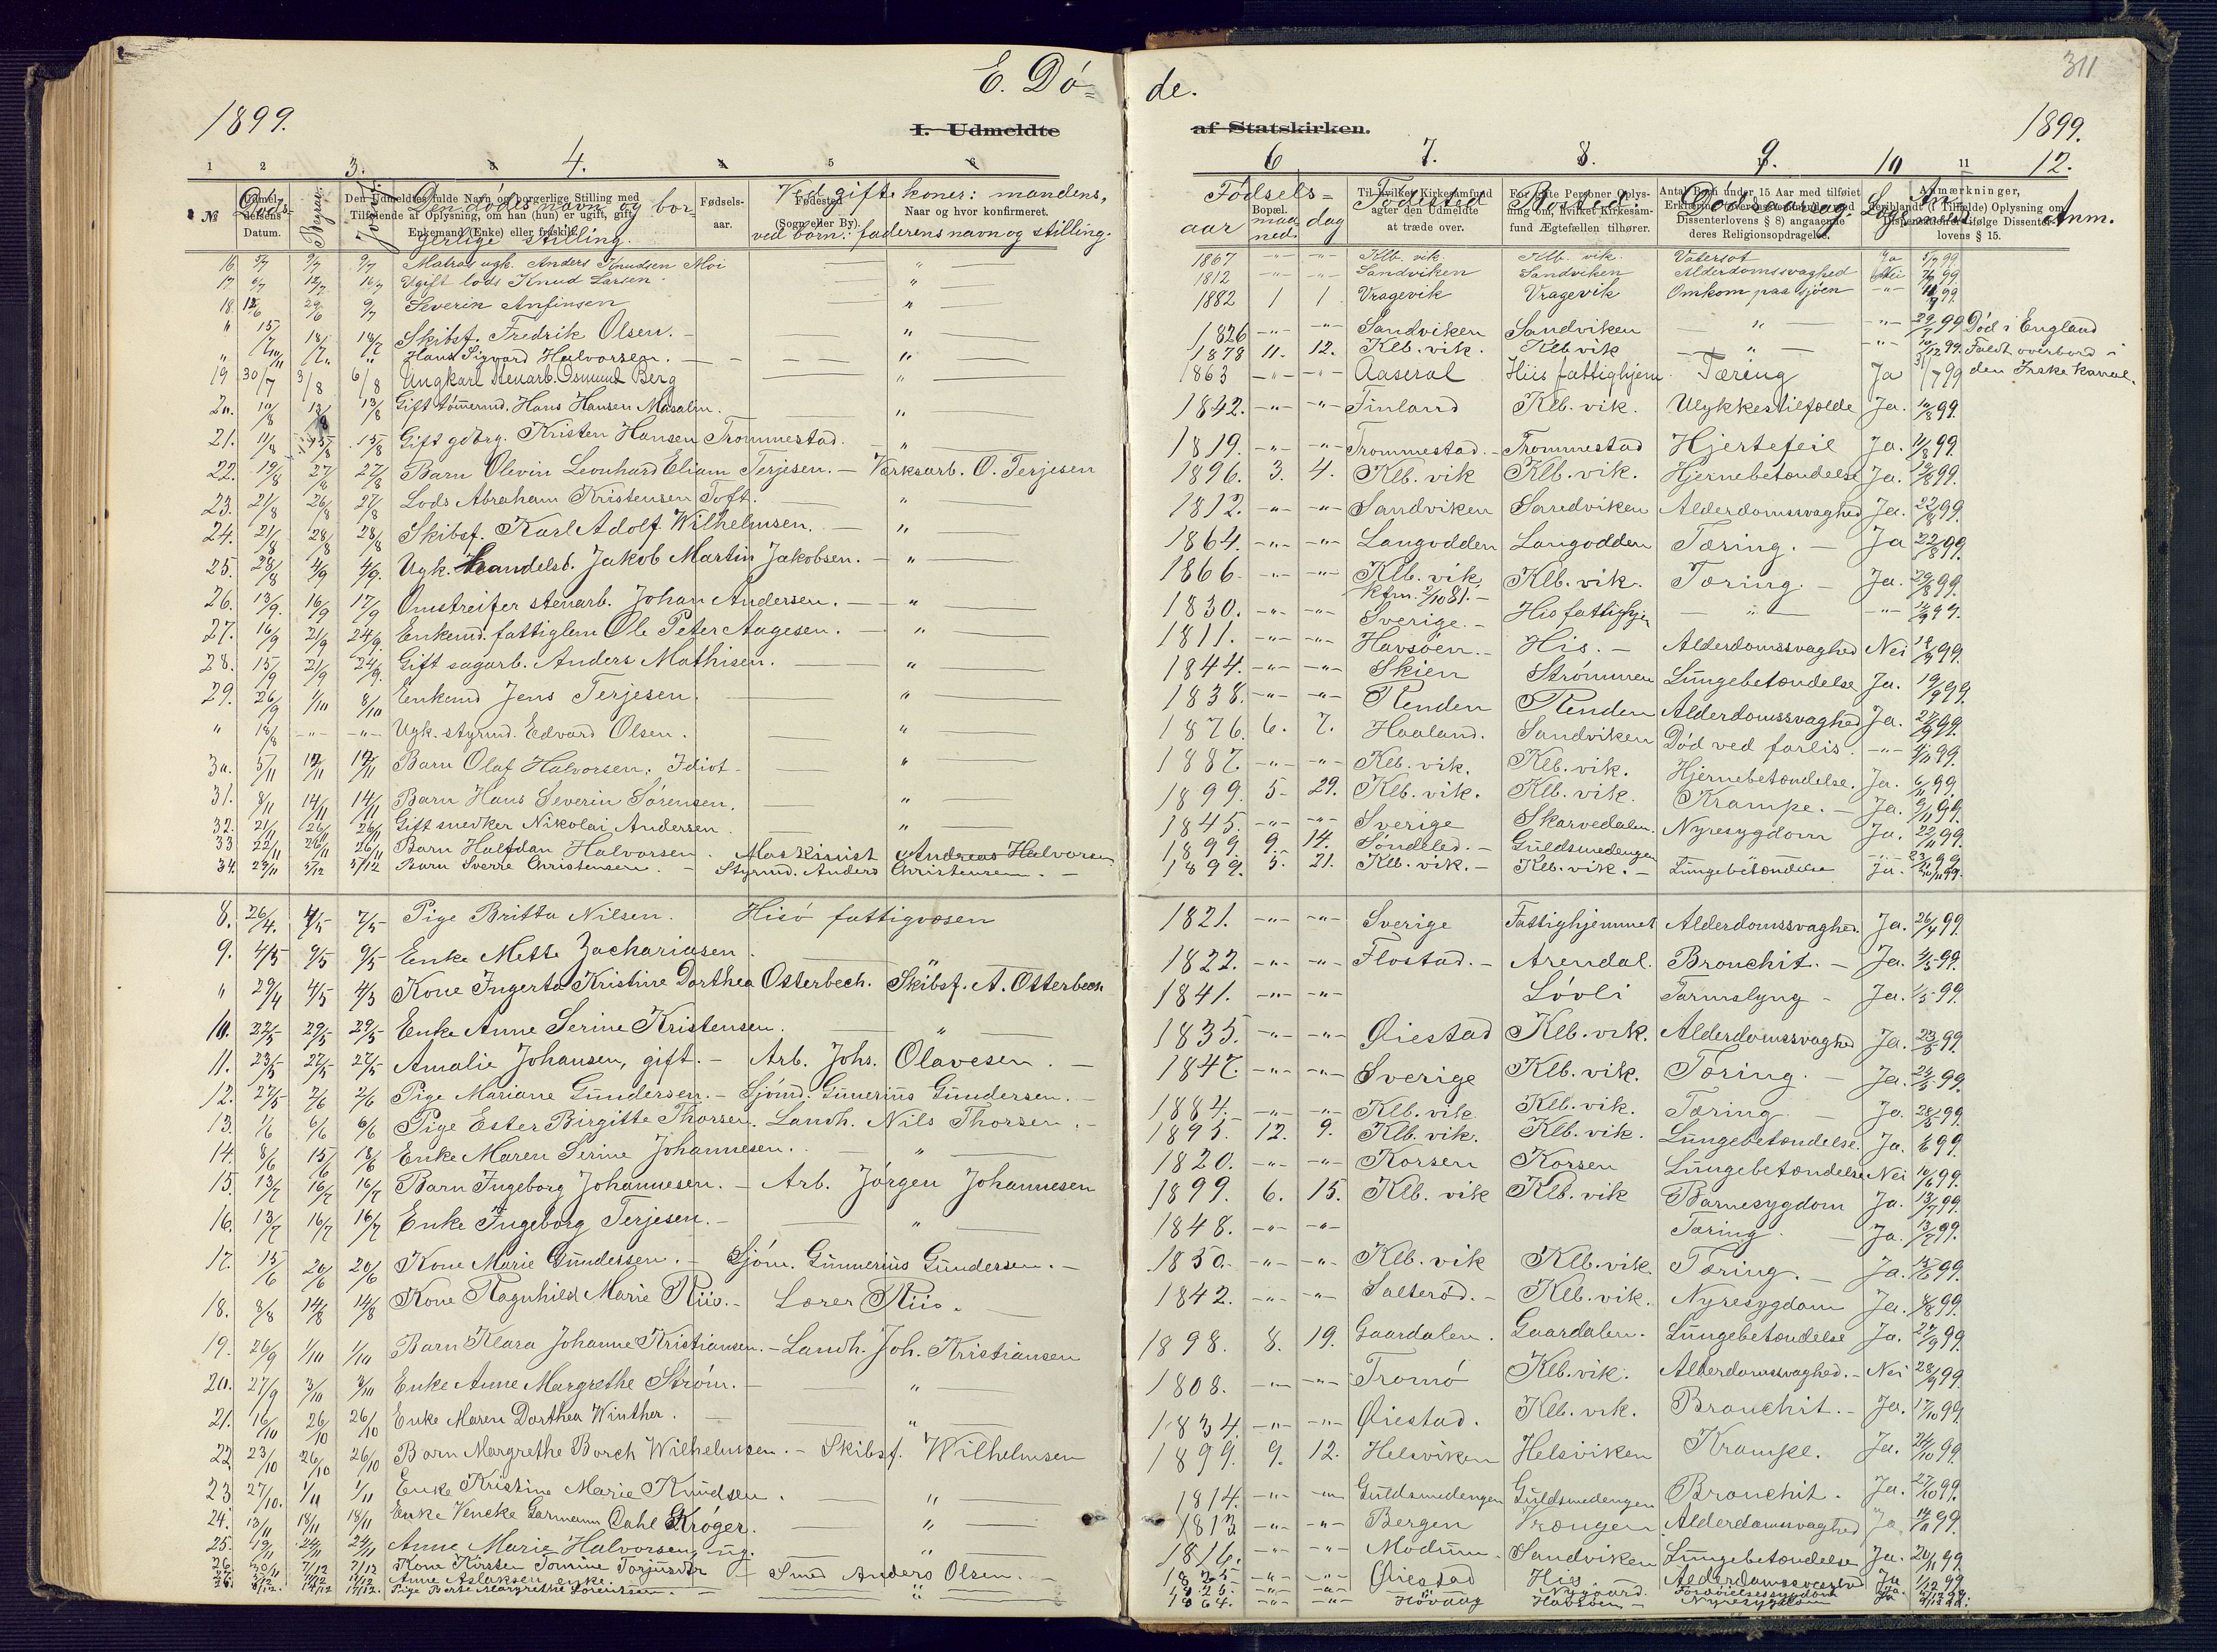 311
E. Dö= de.
1899. I. Udmeldte af Statskirken. 1899.
1 2 3. 3 4. 4 5 6 6 7. 8. 9. 10 11 12.
№ Døds- Udmeldelsens Datum. Begrav. Jordf. Den Udmeldtes fulde Navn og borgerlige Stilling med Tilføiende af Oplysning, om han (hun) er ugift, gift, Enkemand (Enke) eller fraskilt. Den dødes navn og borgerlige stilling. Fødsels-aar. Fødested (Sogn eller By). Naar og hvor konfirmeret. Ved gifte koner: mandens, ved börn: faderens navn og stilling.
Fødsels= aar Bopæl. maaned. dag Til hvilket Kirkesamfund agter den Udmeldte at træde over. Födested For gifte Personer Oplysning om, hvilket Kirkesamfund Ægtefællen tilhører. Bosted. Dödsaarsag. Læge Anmeldt Anmærkninger, Anm.
16 5/7 9/7 9/7 Matros ugk. Anders Knudsen Moi — " — 1867 -"- -"- Klb. vik. Klb. vik. Vatersot Ja 5/7 99
17 9/7 12/7 16/7 Ugift lods Knud Larsen — " — 1812 -"- -"- Sandviken Sandviken Alderdomssvaghed Nei 99
18 Severin Anfinsen " 1882 1 1 Vragevik Vragevik Omkom paa sjöen -"- 99
" Skibsf. Fredrik Olsen. — " — 1826 -"- -"- Sandviken Sandviken — " — -"- 99 Död i England
" Hans Sigvard Halvorsen. — " — 1878 11. 12. Klb. vik. Klb. vik — " — -"- 99. Faldt overbord i
19 30/7 3/8 6/8 Ungkarl stenarb. Osmund Berg — " — 1863 -"- -"- Aaseral Hiis fattighjem Tæring Ja 99 den Irske kanal.
20. 10/8 13/8 13/8 Gift tömmermd. Hans Hansen Masalin. — " — 1842. -"- -"- Finland Klb. vik. Ulykkestilfælde Ja. 10/8 99.
21. 11/8 15/8 15/8 Gift gdbrg. Kristen Hansen Trommestad. — " — 1819. -"- -"- Trommestad. Trommestad Hjertefeil Ja. 11/8 99.
22. 19/8 27/8 27/8 Barn Olevin Leonhard Eliam Terjesen. — Værksarb. O. Terjesen 1896. 3. 4. Klb. vik Klb. vik. Hjernebetændelse Ja. 99.
23. 21/8 26/8 27/8 Lods Abraham Kristensen Toft. — " — 1812. -"- -"- Sandviken Sandviken Alderdomssvaghed Ja. 22/8 99.
24. 21/8 28/8 28/8 Skibsf. Karl Adolf Wilhelmsen. — " — 1864. -"- -"- Langodden Langodden Tæring. — Ja 22/8 99.
25. 28/8 4/9 4/9. Ugk. handelsb. Jakob Martin Jakobsen. — " — 1866. -"- -"- Klb. vik, kfm. 2/10 81. — Klb. vik. Tæring. — Ja. 29/8 99.
26. 13/9. 16/9 17/9 Omstreifer stenarb. Johan Andersen. — " — 1830. -"- -"- Sverige. — His fattighjem — " — -"- 99.
27. 16/9 21/9 24/9. Enkemd. fattiglem Ole Peter Aagesen. — " — 1811. -"- -"- Havsöen. — His. — Alderdomssvaghed Nei 99.
28. 15/9 21/9 24/9. Gift sagarb. Anders Mathisen. — " — 1844. -"- -"- Skien Strömmen Lungebetændelse Ja. 19/9 99.
29. 26/9 1/10 8/10 Enkemd Jens Terjesen. — " — 1838. -"- -"- Renden Renden Alderdomssvaghed Ja. 27/9 99.
" 18/8 -"- -"- Ugk. styrmd. Edvard Olsen. — " — 1876. 6. 7. Haaland. Sandviken Död ved forlis. -"- 99.
30. 5/11 12/11 12/11 Barn Olaf Halvorsen. Idiot — " — 1887. -"- -"- Klb. vik. Klb. vik. Hjernebetændelse. Ja. 6/11 99.
31. 8/11 14/11 14/11 Barn Hans Severin Sörensen. — " — 1899. 5. 29. Klb. vik. Klb. vik. Krampe. — Ja. 9/11 99.
32. 21/11 26/11 26/11 Gift snedker Nikolai Andersen — " — 1845. -"- -"- Sverige Skarvedalen. Nyresygdom Ja. 22/11 99.
33 22/11 26/11 26/11 Barn Halfdan Halvorsen. Maskinist Andreas Halvorsen 1899. 9. 14. Söndeled. — Guldsmedengen -"- 99
34. 29/11 5/12 5/12 Barn Sverre Christensen. — Styrmd. Anders Christensen. — 1899. 5. 21. Klb. vik. — Klb. vik. — Lungebetændelse Ja. 99.
8. 26/4. 4/5 7/5 Pige Britta Nilsen. Hisö fattigvæsen 1821. -"- -"- Sverige Fattighjemmet Alderdomssvaghed. Ja. 26/4 99.
9. 4/5 9/5 9/5 Enke Mette Zachariasen. — " — 1822. -"- -"- Flostad. — Arendal. Bronchit. — Ja. 4/5 99.
" 29/4 4/5 4/5 Kone Ingerta Kristine Dorthea Otterbech. Skibsf. A. Otterbech 1841. -"- -"- Lövli Tarmslyng — Ja. 1/5 99.
10. 22/5 29/5 29/5 Enke Anne Serine Kristensen. — " — 1835. -"- -"- Öiestad Klb. vik. Alderdomssvaghed Ja. 23/5 99.
11. 23/5 27/5 27/5 Amalie Johansen, gift. — Arb. Johs. Olavesen. — 1847. -"- -"- Sverige Klb. vik. Tæring. — Ja. 24/5 99.
12. 27/5 2/6 2/6 Pige Mariane Gundersen. — Sjömd. Gunerius Gundersen. — 1884. -"- -"- Klb. vik Klb. vik. Tæring. — Ja. 28/5 99.
13. 1/6 6/6 6/6 Pige Ester Birgitte Thorsen. Landh. Nils Thorsen. — 1895. 12. 9. Klb. vik. Klb. vik. Lungebetændelse. Ja. 99.
14. 8/6 15/6 18/6 Enke Maren Serine Johannesen. — " — 1820. -"- -"- Korsen Korsen Lungebetændelse Nei 10/6 99.
15. 13/7 16/7 16/7 Barn Ingeborg Johannesen. — Arb. Jörgen Johannesen 1899. 6. 15. Klb. vik Klb. vik Barnesygdom Ja. 13/7 99.
16. 13/7 16/7 16/7 Enke Ingeborg Terjesen. — " — 1848. -"- -"- Tæring. — Ja. 13/7 99.
17. 15/6 20/6 20/6 Kone Marie Gundersen. — Sjöm. Gunnerius Gundersen. — 1850. -"- -"- Klb. vik Klb. vik. Tæring. — Ja. 15/6 99.
18. 8/8 14/8 14/8 Kone Ragnhild Marie Riis. — Lærer Riis. — 1842. -"- -"- Salteröd. — Klb. vik. Nyresygdom Ja. 8/8 99.
19. 26/9 1/10 1/10 Barn Klara Johanne Kristiansen. — Landh. Joh. Kristiansen 1898. 8. 19. Gaardalen. Gaardalen. Lungebetændelse Ja. 27/9 99.
20. 27/9 3/10 3/10 Enke Anne Margrethe Ström. — " — 1808. -"- -"- Tromö Klb. vik. Alderdomssvaghed. — Nei 28/9 99.
21. 16/10 26/10 26/10 Enke Maren Dorthea Winther. — " — 1834. -"- -"- Öiestad. Klb. vik. Bronchit. — Ja. 17/10 99.
22 23/10 26/10 26/10 Barn Margrethe Borch Wilhelmsen. — Skibsf. Wilhelmsen 1899. 9. 12. Helsviken Helsviken Krampe. Ja. 24/10 99.
23 27/10. 1/11 1/11 Enke Kristine Marie Knudsen. — " — 1814. -"- -"- Guldsmedengen Guldsmedengen Bronchit. Ja. 27/10 99.
24. 13/11 18/11 18/11 Enke Vencke Garmann Dahl Kröger. — " — 1813 -"- -"- Bergen Vrængen Alderdomssvaghed Ja. 14/11 99.
25. 19/11 24/11 24/11 Anne Marie Halvorsen, ug. — " — 1816. -"- -"- Modum. Sandviken Lungebetændelse Ja. 20/11 99.
26. 30/11 7/12 7/12 Kone Kirsten Tomine Torjusdtr — Smed Anders Olsen. — -"- -"- Öiestad His Alderdomssvaghed Ja 1/12 99
27. Anne Aslaksen enke. — " — -"- -"- Fordöielsessygdom Ja.
28. Pige Berte Margrethe Sörensen. — " — 1864. -"- -"- Hövaag Havsöen — Nyresygdom Ja